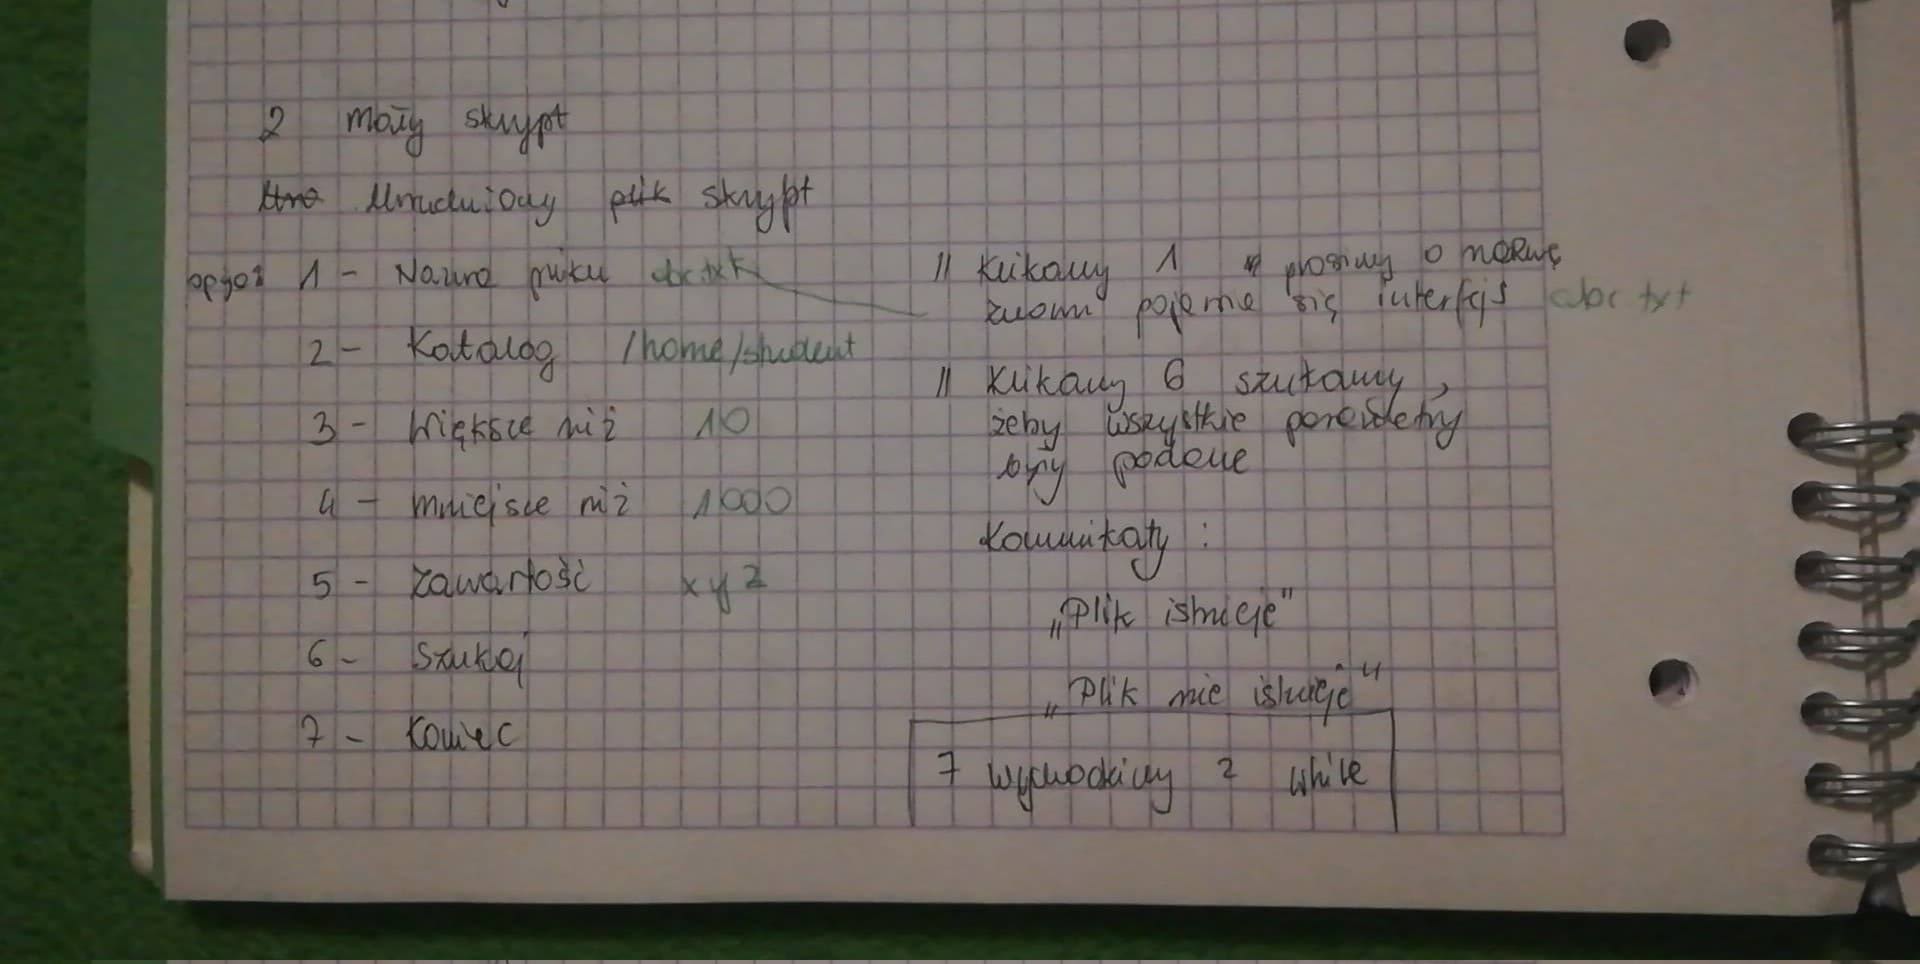 2 mały skrypt
Uruchamiamy skrypt
opcja 1 - Nazwa pliku abc.txt
2 - Katalog /home/student
3 - większe niż 10
4 - mniejsze niż 1000
5 - zawartość xyz
6 - Szukaj
7 - Koniec
// Klikamy 1 prosimy o nazwę
znowu pojawia się interfejs abc txt
// Klikamy 6 szukamy,
żeby wszystkie parametry
były podane
Komunikaty :
„Plik istnieje"
„Plik nie istnieje"
7 wychodzimy z while